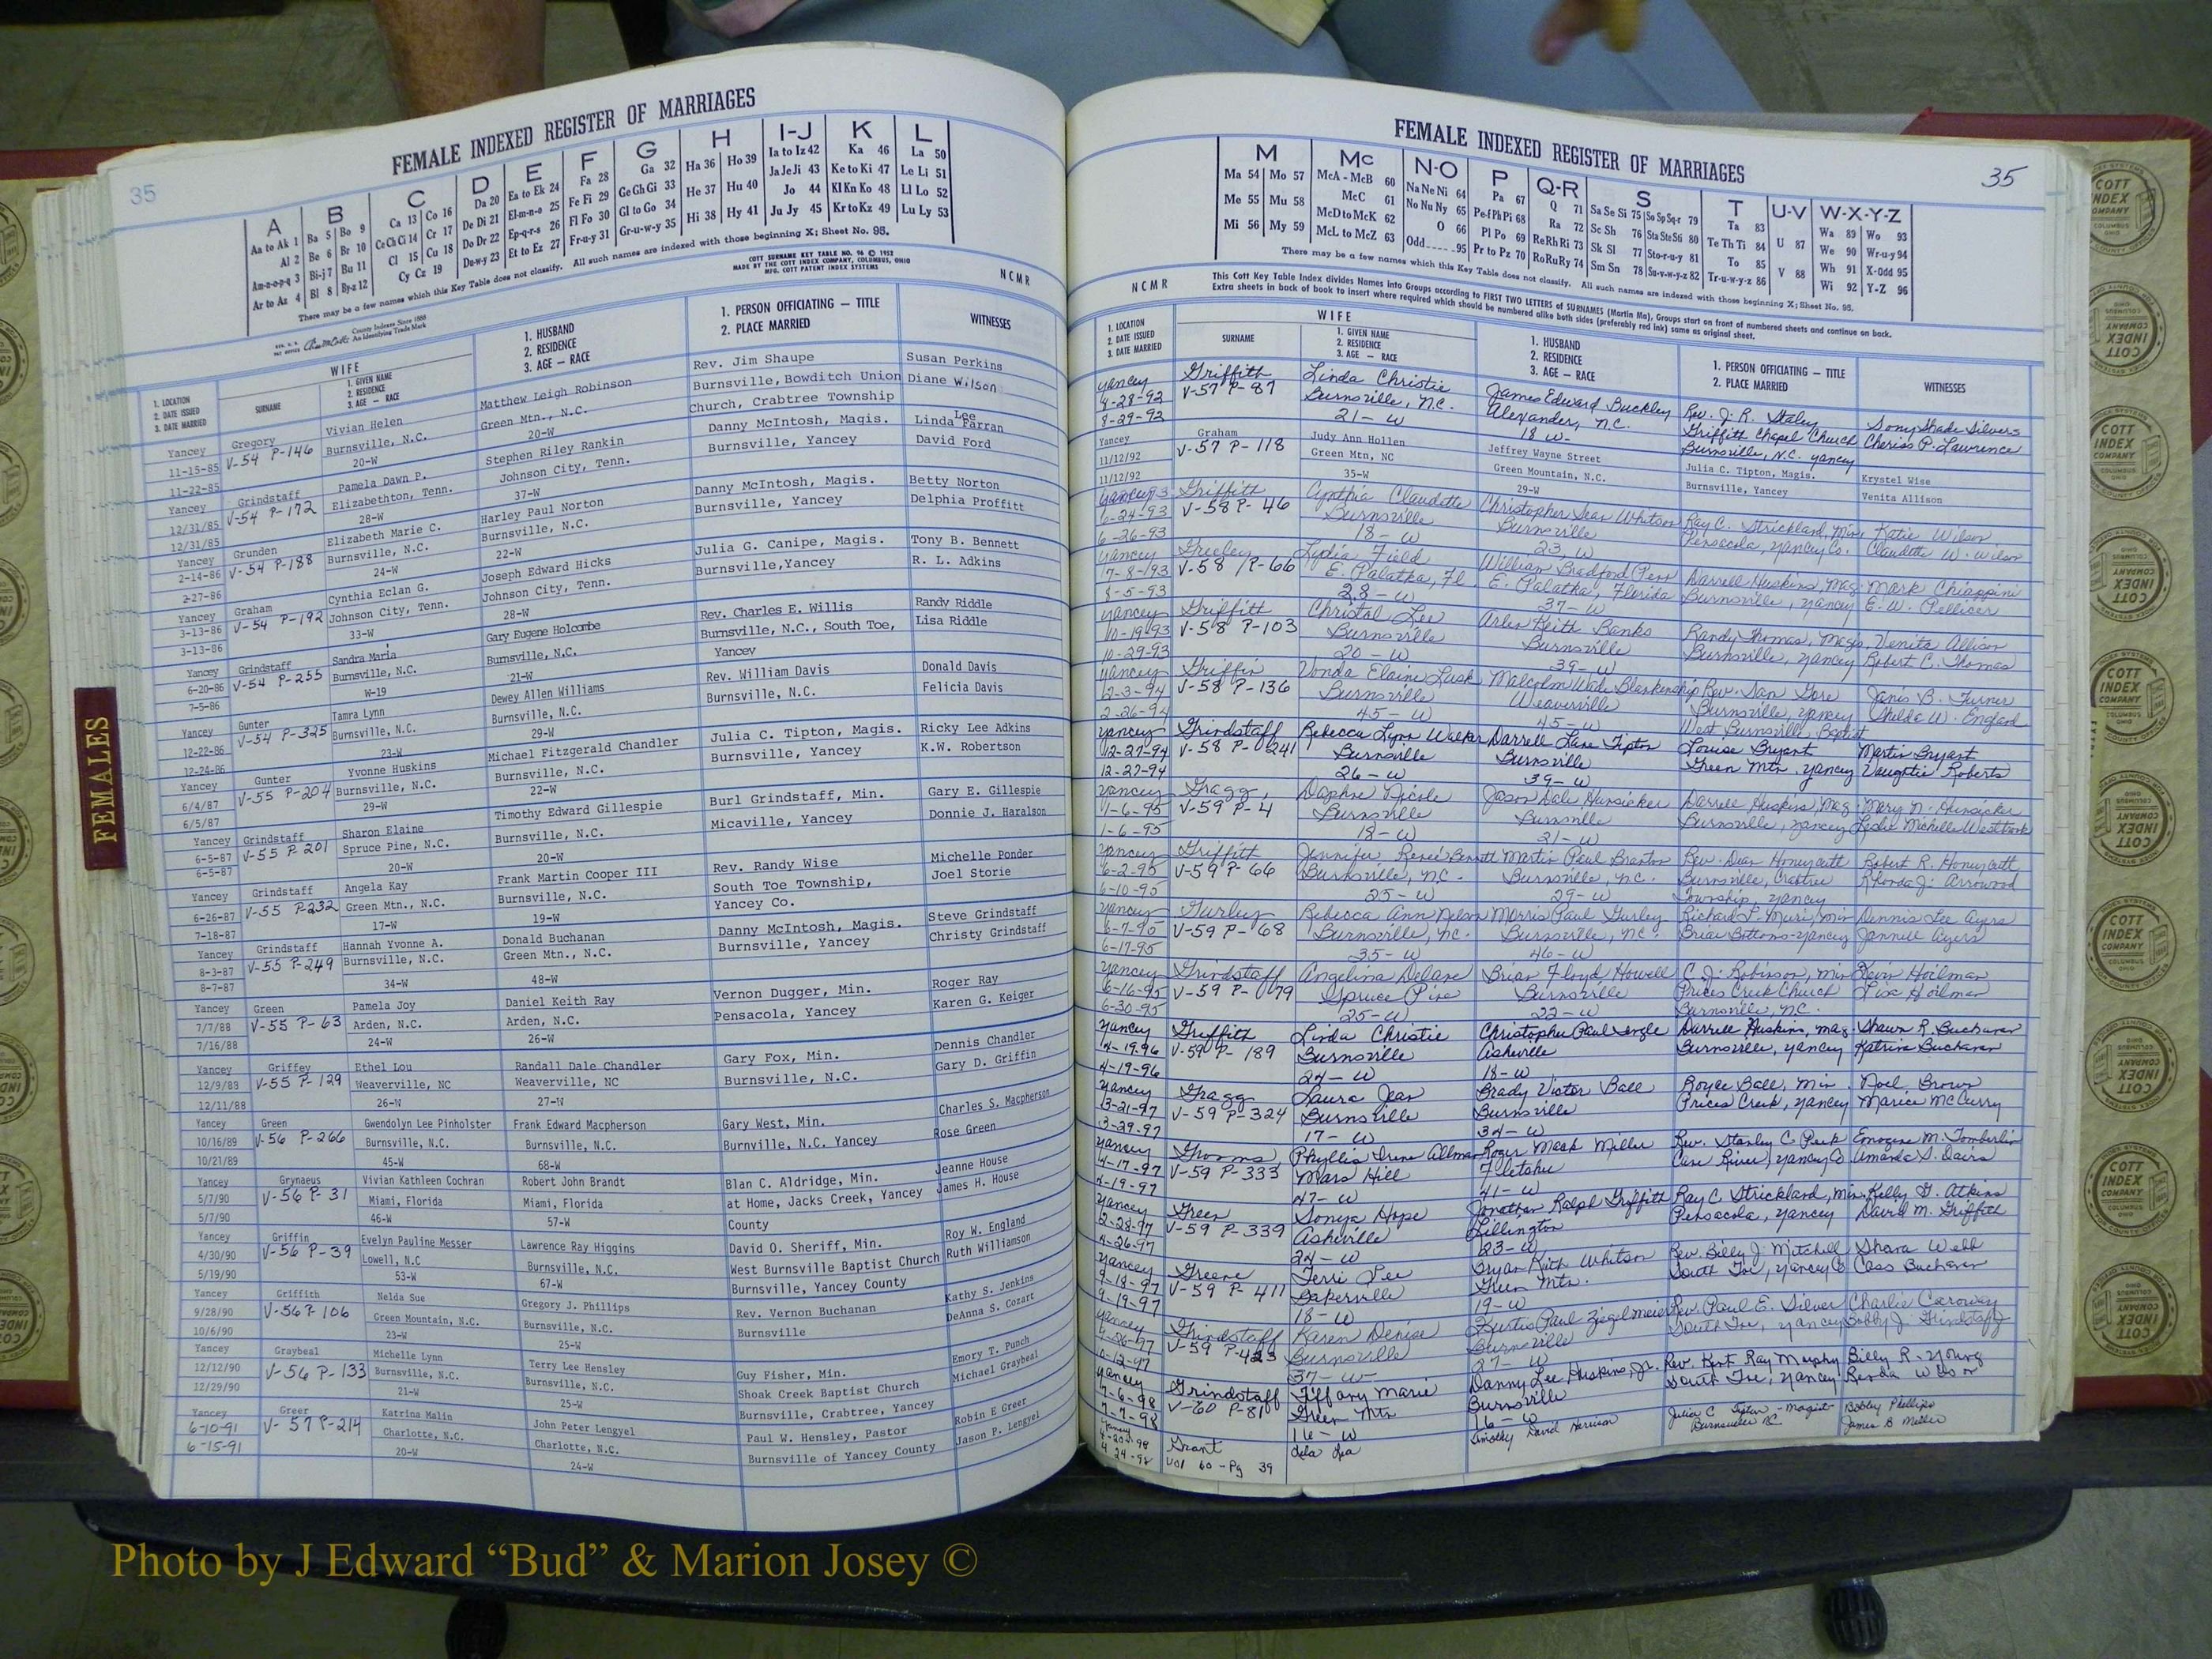 35
FEMALE INDEXED REGISTER OF MARRIAGES
A
Aa to Ak 1
Al 2
Am-n-o-p-q 3
Ar to Az 4
B
Ba 5 Bo 9
Be 6 Br 10
Bi-j 7 Bu 11
Bl 8 By-z 12
C
Ca 13 Co 16
Ce Ch Ci 14 Cr 17
Cl 15 Cu 18
Cy Cz 19
D
Da 20
De Di 21
Do Dr 22
Du-w-y 23
E
Ea to Ek 24
El-m-n-o 25
Ep-q-r-s 26
Et to Ez 27
F
Fa 28
Fe Fi 29
Fl Fo 30
Fr-u-y 31
G
Ga 32
Ge Gh Gi 33
Gl to Go 34
Gr-u-w-y 35
H
Ha 36 Ho 39
He 37 Hu 40
Hi 38 Hy 41
I-J
Ia to Iz 42
Ja Je Ji 43
Jo 44
Ju Jy 45
K
Ka 46
Ke to Ki 47
Kl Kn Ko 48
Kr to Kz 49
L
La 50
Le Li 51
Ll Lo 52
Lu Ly 53
There may be a few names which this Key Table does not classify. All such names are indexed with those beginning X; Sheet No. 96.
COTT SURNAME KEY TABLE NO. 96 © 1952
MADE BY THE COTT INDEX COMPANY, COLUMBUS, OHIO
MFG. COTT PATENT INDEX SYSTEMS
County Indexes Since 1888
An Identifying Trade Mark
NCMR
1. LOCATION
2. DATE ISSUED
3. DATE MARRIED
WIFE
SURNAME
1. GIVEN NAME
2. RESIDENCE
3. AGE — RACE
1. HUSBAND
2. RESIDENCE
3. AGE — RACE
1. PERSON OFFICIATING — TITLE
2. PLACE MARRIED
WITNESSES
Yancey Gregory Vivian Helen Matthew Leigh Robinson Rev. Jim Shaupe Susan Perkins
11-15-85 V-54 P-146 Burnsville, N.C. Green Mtn., N.C. Burnsville, Bowditch Union Diane Wilson
11-22-85 20-W 20-W Church, Crabtree Township
Yancey Grindstaff Pamela Dawn P. Stephen Riley Rankin Danny McIntosh, Magis. Linda Lee Farran
12/31/85 V-54 P-172 Elizabethton, Tenn. Johnson City, Tenn. Burnsville, Yancey David Ford
12/31/85 28-W 37-W
Yancey Grunden Elizabeth Marie C. Harley Paul Norton Danny McIntosh, Magis. Betty Norton
2-14-86 V-54 P-188 Burnsville, N.C. Burnsville, N.C. Burnsville, Yancey Delphia Proffitt
2-27-86 24-W 22-W
Yancey Graham Cynthia Eclan G. Joseph Edward Hicks Julia G. Canipe, Magis. Tony B. Bennett
3-13-86 V-54 P-192 Johnson City, Tenn. Johnson City, Tenn. Burnsville,Yancey R. L. Adkins
3-13-86 33-W 28-W
Yancey Grindstaff Sandra Maria Gary Eugene Holcombe Rev. Charles E. Willis Randy Riddle
6-20-86 V-54 P-255 Burnsville, N.C. Burnsville, N.C. Burnsville, N.C., South Toe, Lisa Riddle
7-5-86 W-19 21-W Yancey
Yancey Gunter Tamra Lynn Dewey Allen Williams Rev. William Davis Donald Davis
12-22-86 V-54 P-325 Burnsville, N.C. Burnsville, N.C. Burnsville, N.C. Felicia Davis
12-24-86 23-W 29-W
Yancey Gunter Yvonne Huskins Michael Fitzgerald Chandler Julia C. Tipton, Magis. Ricky Lee Adkins
6/4/87 V-55 P-204 Burnsville, N.C. Burnsville, N.C. Burnsville, Yancey K.W. Robertson
6/5/87 29-W 22-W
Yancey Grindstaff Sharon Elaine Timothy Edward Gillespie Burl Grindstaff, Min. Gary E. Gillespie
6-5-87 V-55 P-201 Spruce Pine, N.C. Burnsville, N.C. Micaville, Yancey Donnie J. Haralson
6-5-87 20-W 20-W
Yancey Grindstaff Angela Kay Frank Martin Cooper III Rev. Randy Wise Michelle Ponder
6-26-87 V-55 P-232 Green Mtn., N.C. Burnsville, N.C. South Toe Township, Joel Storie
7-18-87 17-W 19-W Yancey Co.
Yancey Grindstaff Hannah Yvonne A. Donald Buchanan Danny McIntosh, Magis. Steve Grindstaff
8-3-87 V-55 P-249 Burnsville, N.C. Green Mtn., N.C. Burnsville, Yancey Christy Grindstaff
8-7-87 34-W 48-W
Yancey Green Pamela Joy Daniel Keith Ray Vernon Dugger, Min. Roger Ray
7/7/88 V-55 P-63 Arden, N.C. Arden, N.C. Pensacola, Yancey Karen G. Keiger
7/16/88 24-W 26-W
Yancey Griffey Ethel Lou Randall Dale Chandler Gary Fox, Min. Dennis Chandler
12/9/88 V-55 P-129 Weaverville, NC Weaverville, NC Burnsville, N.C. Gary D. Griffin
12/11/88 26-W 27-W
Yancey Green Gwendolyn Lee Pinholster Frank Edward Macpherson Gary West, Min. Charles S. Macpherson
10/16/89 V-56 P-266 Burnsville, N.C. Burnsville, N.C. Burnville, N.C. Yancey Rose Green
10/21/89 45-W 68-W
Yancey Grynaeus Vivian Kathleen Cochran Robert John Brandt Blan C. Aldridge, Min. Jeanne House
5/7/90 V-56 P-31 Miami, Florida Miami, Florida at Home, Jacks Creek, Yancey James H. House
5/7/90 46-W 57-W County
Yancey Griffin Evelyn Pauline Messer Lawrence Ray Higgins David O. Sheriff, Min. Roy W. England
4/30/90 V-56 P-39 Lowell, N.C Burnsville, N.C. West Burnsville Baptist Church Ruth Williamson
5/19/90 53-W 67-W Burnsville, Yancey County
Yancey Griffith Nelda Sue Gregory J. Phillips Rev. Vernon Buchanan Kathy S. Jenkins
9/28/90 V-56 P-106 Green Mountain, N.C. Burnsville, N.C. Burnsville DeAnna S. Cozart
10/6/90 23-W 25-W
Yancey Graybeal Michelle Lynn Terry Lee Hensley Guy Fisher, Min. Emory T. Punch
12/12/90 V-56 P-133 Burnsville, N.C. Burnsville, N.C. Shoak Creek Baptist Church Michael Graybeal
12/29/90 21-W 25-W Burnsville, Crabtree, Yancey
Yancey Greer Katrina Malin John Peter Lengyel Paul W. Hensley, Pastor Robin E Greer
6-10-91 V-57 P-214 Charlotte, N.C. Charlotte, N.C. Burnsville of Yancey County Jason P. Lengyel
6-15-91 20-W 24-W
FEMALES
FEMALE INDEXED REGISTER OF MARRIAGES
35
M
Ma 54 Mo 57
Me 55 Mu 58
Mi 56 My 59
Mc
McA - McB 60
McC 61
McD to McK 62
McL to McZ 63
N-O
Na Ne Ni 64
No Nu Ny 65
O 66
Odd 95
P
Pa 67
Pe-f Ph Pi 68
Pl Po 69
Pr to Pz 70
Q-R
Q 71
Ra 72
Re Rh Ri 73
Ro Ru Ry 74
S
Sa Se Si 75 So Sp Sq-r 79
Sc Sh 76 Sta Ste Sti 80
Sk Sl 77 Sto-r-u-y 81
Sm Sn 78 Su-v-w-y-z 82
T
Ta 83
Te Th Ti 84
To 85
Tr-u-w-y-z 86
U-V
U 87
V 88
W-X-Y-Z
Wa 89 Wo 93
We 90 Wr-u-y 94
Wh 91 X-Odd 95
Wi 92 Y-Z 96
There may be a few names which this Key Table does not classify. All such names are indexed with those beginning X; Sheet No. 96.
NCMR
This Cott Key Table Index divides Names into Groups according to FIRST TWO LETTERS of SURNAMES (Martin Ma), Groups start on front of numbered sheets and continue on back.
Extra sheets in back of book to insert where required which should be numbered alike both sides (preferably red ink) same as original sheet.
1. LOCATION
2. DATE ISSUED
3. DATE MARRIED
WIFE
SURNAME
1. GIVEN NAME
2. RESIDENCE
3. AGE — RACE
1. HUSBAND
2. RESIDENCE
3. AGE — RACE
1. PERSON OFFICIATING — TITLE
2. PLACE MARRIED
WITNESSES
Yancey Griffith Linda Christie James Edward Buckley Rev. J. R. Staley Sony Shade Silvers
8-28-92 V-57 P-87 Burnsville, N.C. Alexander, N.C. Griffith Chapel Church Cheriss P. Lawrence
8-29-92 21-W 18 W- Burnsville, N.C. Yancey
Yancey Graham Judy Ann Hollen Jeffrey Wayne Street Julia C. Tipton, Magis. Krystel Wise
11/12/92 V-57 P-118 Green Mtn, NC Green Mountain, N.C. Burnsville, Yancey Venita Allison
11/12/92 35-W 29-W
Yancey Griffith Cynthia Claudette Christopher Sean Whitson Ray C. Strickland, Min Katie Wilson
6-24-93 V-58 P-46 Burnsville Burnsville Pensacola, Yancey Co. Claudette W. Wilson
6-26-93 18-W 23 W
Yancey Greeley Lydia Field William Bradford Penn Darrell Huskins, Mag. Mark Chiappini
7-8-93 V-58 P-66 E. Palatka, Fl E. Palatka, Florida Burnsville, Yancey E. W. Pellicer
8-5-93 28-W 37-W
Yancey Griffith Christal Lee Arlen Keith Banks Randy Thomas, Mags. Venita Allison
10-19-93 V-58 P-103 Burnsville Burnsville Burnsville, Yancey Robert C. Thomas
10-29-93 20-W 39-W
Yancey Griffin Vonda Elaine Lusk Malcolm Wade Blankenship Rev. Dan Gore Janis B. Turner
2-3-94 V-58 P-136 Burnsville Weaverville Burnsville, Yancey Shelda W. England
2-26-94 45-W 45-W West Burnsville, Baptist
Yancey Grindstaff Rebecca Lynn Walker Darrell Lane Tipton Louise Bryant Martin Bryant
12-27-94 V-58 P-241 Burnsville Burnsville Green Mtn, Yancey Vaughtie Roberts
12-27-94 26-W 39-W
Yancey Gragg, Daphne Nicole Jason Dale Hunsicker Darrell Huskins, Mag. Mary N. Hunsicker
1-6-95 V-59 P-4 Burnsville Burnsville Burnsville, Yancey Leslie Michelle Westbrook
1-6-95 18-W 21-W
Yancey Griffith Jennifer Reneé Bennett Martin Paul Braxton Rev. Dean Honeycutt Robert R. Honeycutt
6-2-95 V-59 P-66 Burnsville, N.C. Burnsville, N.C. Burnsville, Crabtree Rhonda J. Arrowood
6-10-95 25-W 29-W Township, Yancey
Yancey Gurley Rebecca Ann Nelson Morris Paul Gurley Richard F. Muri, Min Dennis Lee Ayers
6-7-95 V-59 P-68 Burnsville, N.C. Burnsville, N.C. Briar Bottoms-Yancey Jannell Ayers
6-17-95 35-W 46-W
Yancey Grindstaff Angelina Delane Brian Floyd Howell C.J. Robinson, Min Kevin Hoilman
6-16-95 V-59 P-079 Spruce Pine Burnsville Prices Creek Church Lisa Hoilman
6-30-95 25-W 22-W Burnsville, N.C.
Yancey Griffith Linda Christie Christopher Paul Engle Darrell Huskins, Mag. Shawn R. Buchanan
4-19-96 V-59 P-189 Burnsville Asheville Burnsville, Yancey Katrina Buchanan
4-19-96 24-W 18-W
Yancey Gragg Laura Jean Brady Victor Ball Royce Ball, Min. Noel Brown
3-21-97 V-59 P-324 Burnsville Burnsville Prices Creek, Yancey Marice McCurry
3-29-97 17-W 34-W
Yancey Grooms Phyllis Irene Allman Roger Mack Miller Rev. Stanley C Peek Emogene M. Tomberlin
4-17-97 V-59 P-333 Mars Hill Fletcher Cane River, Yancey Co Amanda S. Davis
4-19-97 47-W 41-W
Yancey Green Sonya Hope Jonathan Ralph Griffith Ray C. Strickland, Min. Kelly G. Atkins
2-28-97 V-59 P-339 Asheville Lillington Pensacola, Yancey David M. Griffith
4-26-97 24-W 23-W
Yancey Greene Terri Lee Bryan Keith Whitson Rev. Billy J. Mitchell Shara Webb
9-18-97 V-59 P-411 Bakersville Green Mtn. South Toe, Yancey Co Cass Buchanan
9-19-97 18-W 19-W
Yancey Grindstaff Karen Denise Kurtis Paul Ziegelmeier Rev. Paul E. Silver Charlie Caroway
V-59 P-423 Burnsville Burnsville South Toe, Yancey Bobby J. Grindstaff
10-12-97 37-W 27-W
Yancey Grindstaff Tiffany Marie Danny Lee Huskins, Jr. Rev. Kent Ray Murphy Billy R. Young
7-6-98 V-60 P-81 Green Mtn Burnsville South Toe, Yancey Renda
7-7-98 16-W 16-W
Yancey Grant Lela Lea Timothy David Harrison Julia C Tipton - Magist Bobby Phillips
4-20-98 Vol 60-Pg 39 Burnsville NC James B
4 24-98
COTT INDEX COMPANY COLUMBUS OHIO
Photo by J Edward “Bud” & Marion Josey ©